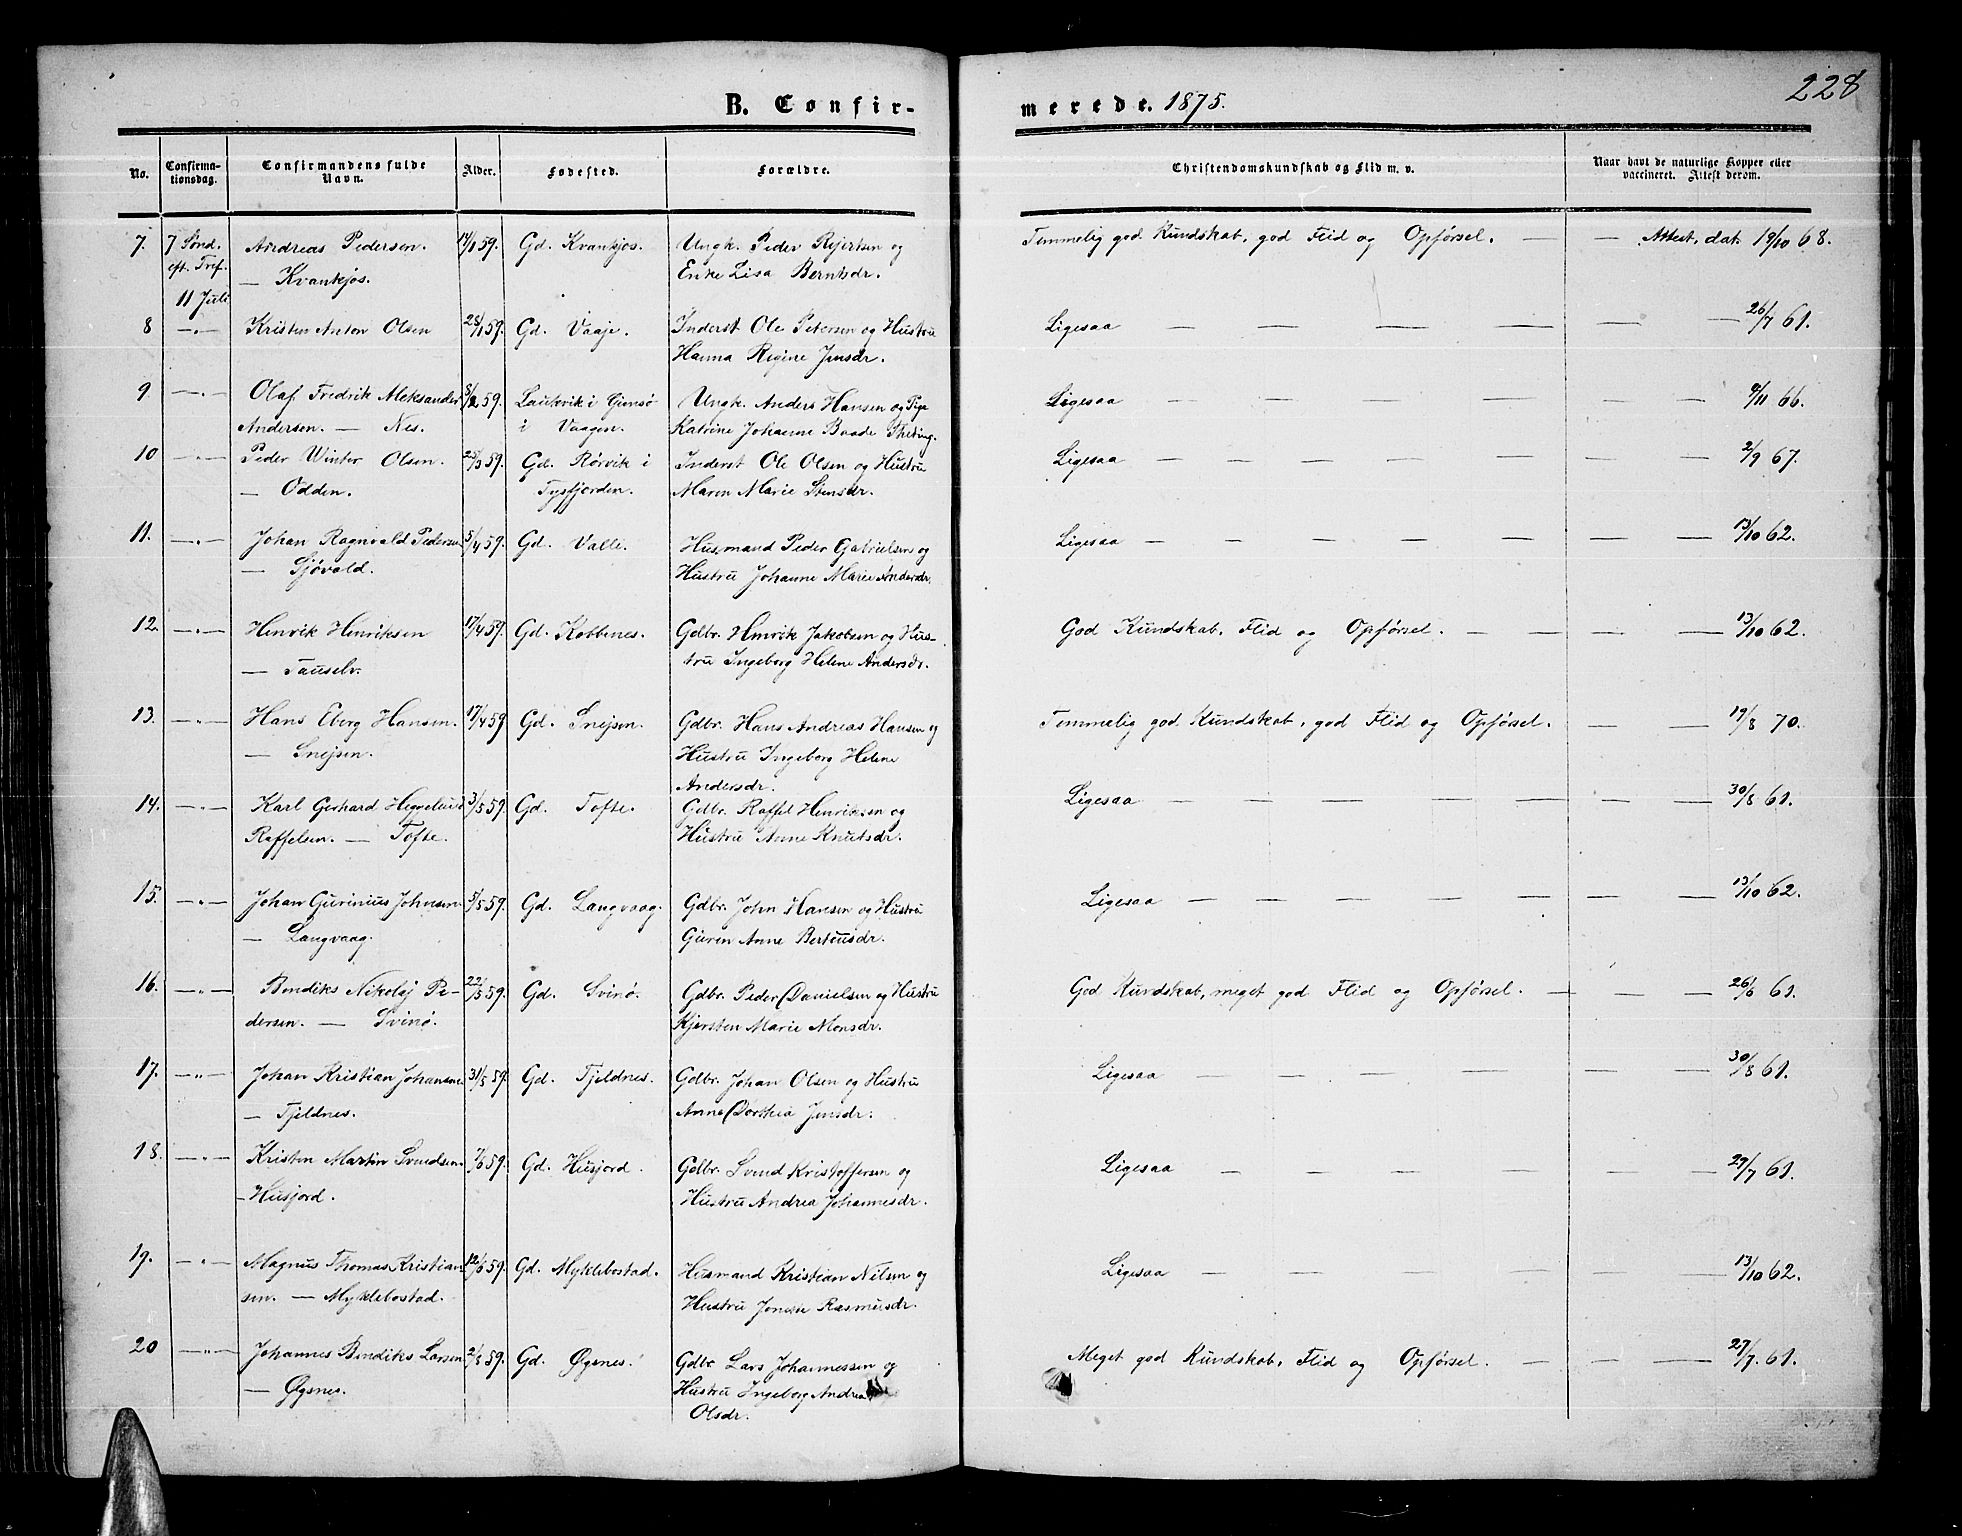 228
B. Confir-
merede. 1875.
No.
Confirma-
tionsdag.
Confirmandens fulde
Navn.
Alder.
Fødested.
Forældre.
Christendomskundskab og Flid m. v.
Naar havt de naturlige Kopper eller
vaccineret. Attest derom.
7. 7 Sønd. Andreas Pedersen. 14/1 59. Gd. Kvankjos. Ungk. Peder Rejertsen og Temmelig god Kundskab, god Flid og Opførsel. — — Attest, dat. 19/10 68.
eft. Tref. — Kvankjos. Enke Lisa Berntsdr.
11 Juli
8 —„— Kristen Anton Olsen 28/1 59. Gd. Vaaje. Inderst Ole Petersen og Hustru Ligesaa — — — — — — — 26/7 61.
Hanna Regine Jensdr.
9 —„— Olaf Fredrik Aleksander 8/2 59. Laukvik i Gimsø Ungk. Anders Hansen og Pige Ligesaa — — — — — — — 9/11 66.
Andersen. — Nes. i Vaagen. Katrine Johanne Baade Thering.
10 —„— Peder Winter Olsen. 25/3 59. Gd. Rørvik i Inderst Ole Olsen og Hustru Ligesaa — — — — — — — 2/9 67.
— Odden. Tysfjorden. Maren Marie Stensdr.
11. —„— Johan Ragnvald Pedersen 5/4 59. Gd. Valle. Husmand Peder Gabrielsen og Ligesaa — — — — — — — 13/10 62.
— Sjøvold. Hustru Johanne Marie Andersdr.
12. —„— Henrik Henriksen 17/4 59. Gd. Kobbenes. Gdbr. Henrik Jakobsen og Hus- God Kundskab, Flid og Opførsel. — — — — 13/10 62.
— Tauselv. tru Ingeborg Helene Andersdr.
13. —„— Hans Eberg Hansen. 17/4 59 Gd. Snejsen. Gdbr. Hans Andreas Hansen og Temmelig god Kundskab, god Flid og Opførsel. — — 19/8 70.
— Snejsen. Hustru Ingeborg Helene
Andersdr.
14. —„— Karl Gerhard Hegelund 3/5 59. Gd. Tofte. Gdbr. Raffel Henriksen og Ligesaa — — — — — — — 30/8 61.
Raffelsen. — Tofte. Hustru Anne Knutsdr.
15. —„— Johan Gurinius Johnsen 5/5 59. Gd. Langvaag. Gdbr. John Hansen og Hustru Ligesaa — — — — — — — 13/10 62.
— Langvaag. Guren Anne Berteusdr.
16. —„— Bendiks Nikolaj Pe- 22/5 59. Gd. Svinø. Gdbr. Peder Danielsen og Hustru God Kundskab, meget god Flid og Opførsel. — — — 26/6 61.
dersen. — Svinø. Kjersten Marie Monsdr.
17. —„— Johan Kristian Johansen 31/5 59. Gd. Tjeldnes. Gdbr. Johan Olsen og Hustru Ligesaa — — — — — — — 30/8 61.
— Tjeldnes. Anne Dorthea Jensdr.
18. —„— Kristen Martin Svendsen. 7/6 59. Gd. Husjord. Gdbr. Svend Kristoffersen og Ligesaa — — — — — — — 27/7 61.
— Husjord. Hustru Andrea Johannesdr.
19. —„— Magnus Thomas Kristian- 12/6 59. Gd. Myklebostad. Husmand Kristian Nilsen og Ligesaa — — — — — — — 13/10 62.
sen. — Myklebostad. Hustru Jonette Rasmusdr.
20 —„— Johannes Bendiks Larsen 2/8 59. Gd. Øgsnes. Gdbr. Lars Johannessen og Meget god Kundskab, Flid og Opførsel. — — — 27/7 61.
— Øgsnes. Hustru Ingeborg Andrea
Olsdr.